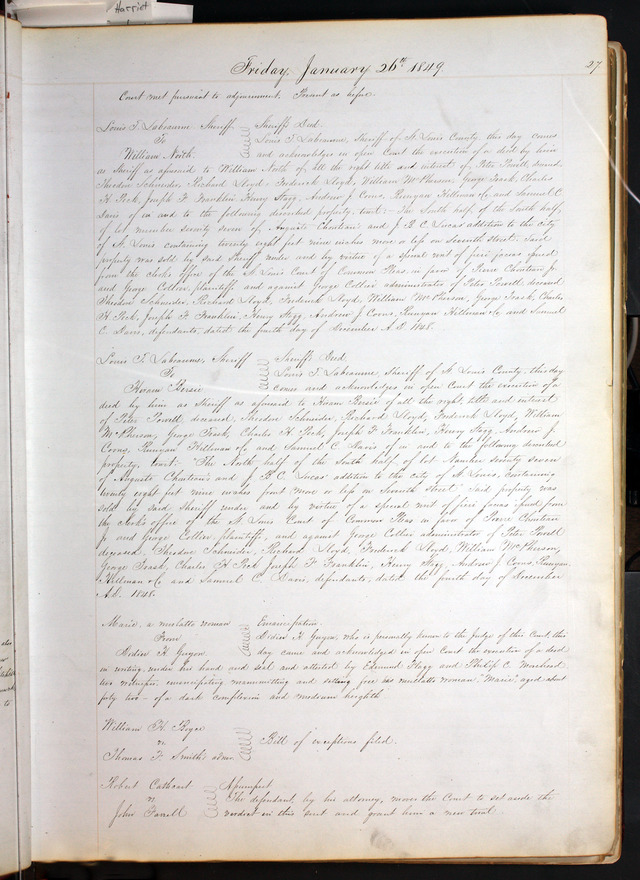 Harriet
Friday, January 26th 1849.
27
Court met pursuant to adjournment. Present as before.
Louis T. Labeaume Sheriff Sheriff's Deed
To Louis T. Labeaume, Sheriff of St Louis County, this day comes
William North. and acknowledges in open Court the execution of a deed by him
as Sheriff as aforesaid to William North of all the right title and interest of Peter Powell, deceased
Theodore Schneider, Richard Lloyd, Frederick Lloyd, William McPherson, George Trask, Charles
H. Peck, Joseph F. Franklin, Henry Stagg, Andrew J. Corns, Runyan Hillman &c and Samuel C.
Davis of in and to the following described property, to wit: The South half of the South half
of lot number seventy seven of Auguste Chouteau and J. B. C. Lucas' addition to the city
of St. Louis containing twenty eight feet nine inches more or less on Seventh street. Said
property was sold by said Sheriff under and by virtue of a special writ of fieri facias issued
from the clerks office of the St Louis Court of Common Pleas in favor of Pierre Chouteau Jr.
and George Collier, plaintiffs and against George Collier administrator of Peter Powell deceased
Theodore Schneider, Richard Lloyd, Frederick Lloyd, William McPherson, George Trask, Charles
H. Peck, Joseph F. Franklin, Henry Stagg, Andrew J. Corns, Runyan Hillman &c and Samuel
C. Davis, defendants, dated the fourth day of December A.D. 1848.
Louis T. Labeaume, Sheriff Sheriff's Deed
To Louis T. Labeaume Sheriff of St Louis County, this day
Hiram comes and acknowledges in open Court the execution of a
deed by him as Sheriff as aforesaid to Hiram of all the right, title and interest
of Peter Powell, deceased, Theodore Schneider, Richard Lloyd, Frederick Lloyd, William
McPherson, George Trask, Charles H. Peck, Joseph F. Franklin, Henry Stagg, Andrew J.
Corns, Runyan Hillman &c and Samuel C. Davis of in and to the following described
property, to wit: "The North half of the South half of lot Number seventy seven
of Auguste Chouteau's and J. B. C. Lucas' addition to the city of St Louis, containing
twenty eight feet nine inches front more or less on Seventh street" Said property was
sold by said Sheriff under and by virtue of a special writ of fieri facias issued from
the clerks office of the St Louis Court of Common Pleas in favor of Pierre Chouteau
Jr and George Collier, plaintiffs, and against George Collier administrator of Peter Powell
deceased, Theodore Schneider, Richard Lloyd, Frederick Lloyd, William McPherson,
George Trask, Charles H Peck Joseph F. Franklin, Henry Stagg, Andrew J. Corns, Runyan
Hillman &c and Samuel C. Davis, defendants, dated the fourth day of December
A.D. 1848.
Marie, a mulatto woman Emancipation.
From Didier H. Guyon, who is personally known to the Judge of this Court this
Didier H. Guyon. day came and acknowledged in open Court the execution of a deed
in writing, under his hand and seal and attested by Edmund Flagg and Philip C. Morehead
two witnesses, emancipating manumitting and setting free his mulatto woman, "Marie," aged about
fifty two - of a dark complexion and medium heighth.
William H. Boyce
vs Bill of exceptions filed.
Thomas F. Smith's admr
Robert Cathcart Assumpsit
vs The defendant, by his attorney, moves the Court to set aside the
John Farrell verdict in this suit and grant him a new trial.